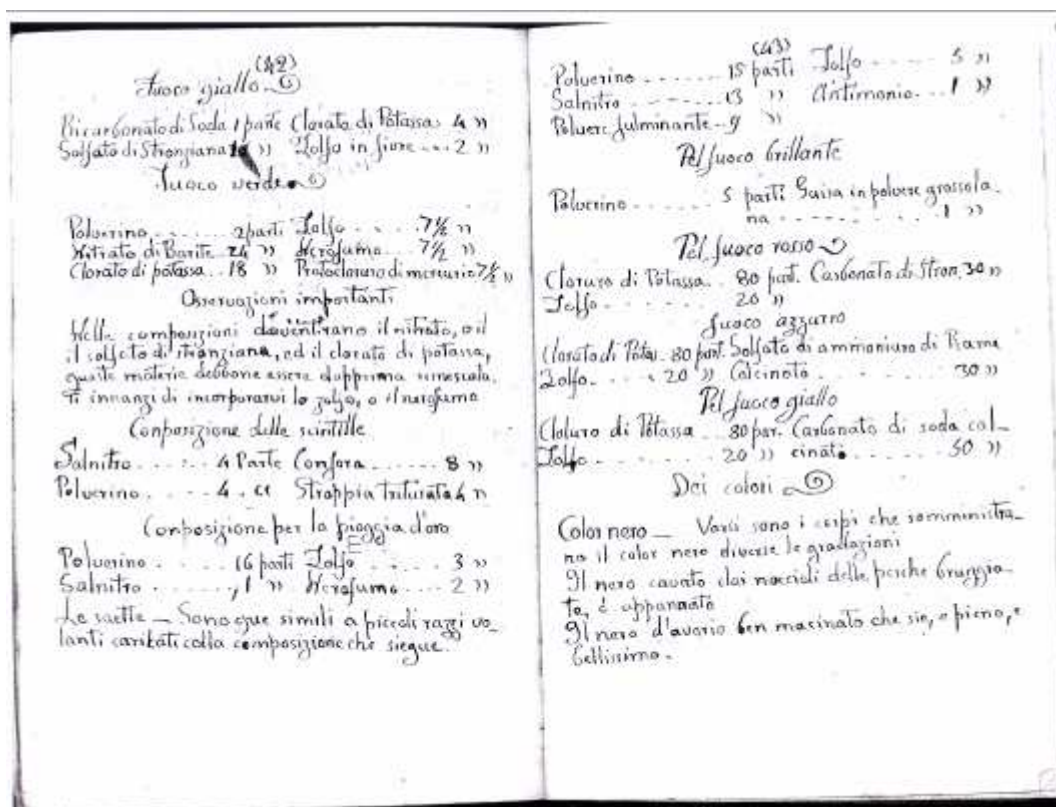 (42)
Fuoco giallo
Bicarbonato di Soda 1 parte Clorato di Potassa 4 "
Solfato di Stronziana " Zolfo in fiore ... 2 "
Fuoco verde
Polverino ...... 2 parti Zolfo .... 7 ½ "
Nitrato di Barite 24 " Nerofumo .... 7 ½ "
Clorato di potassa .. 18 " Protocloruro di mercurio 7 ½ "
Osservazioni importanti
Nelle composizioni dov'entrano il nitrato, o il
il solfato di stronziana, ed il clorato di potassa,
queste materie debbone essere dapprima rimescola.
Ti innanzi di incorporarvi lo zolfo, o il nerofumo
Conposizione delle scintille
Salnitro ...... 4 Parte Confora ...... 8 "
Polverino .... 4 . " triturata 4 "
Conposizione per la pioggia d'oro
Polverino ...... 16 parti Zolfo ..... 3 "
Salnitro ....... 1 " Nerofumo .... 2 "
Le saette — Sono que simili a piccoli razzi vo_
lanti caricati colla composizione che siegue.
(43)
Polverino ....... 15 parti Zolfo ..... 5 "
Salnitro ........ 13 " Antimonio ... 1 "
Polvere fulminante .. 9 "
Pel fuoco brillante
Polverino ...... 5 parti in polvere grossola_
na ........... 1 "
Pel fuoco rosso
Cloruro di Potassa .. 80 part. Carbonato di Stron. 30 "
Zolfo ...... 20 "
fuoco azzurro
Clorato di Potas. 80 part. Solfato di ammoniuro di Rame
Zolfo .... 20 " Calcinato ....... 30 "
Pel fuoco giallo
Cloluro di Potassa .. 80 par. Carbonato di soda cal_
Zolfo ...... 20 " cinato ....... 50 "
Dei colori
Color nero — Varii sono i corpi che somministra_
no il color nero diverse le gradazioni
Il nero cavato dai noccioli delle persche bruggia_
to, è appannato
Il nero d'avorio ben macinato che sie, e pieno, e
bellissimo.